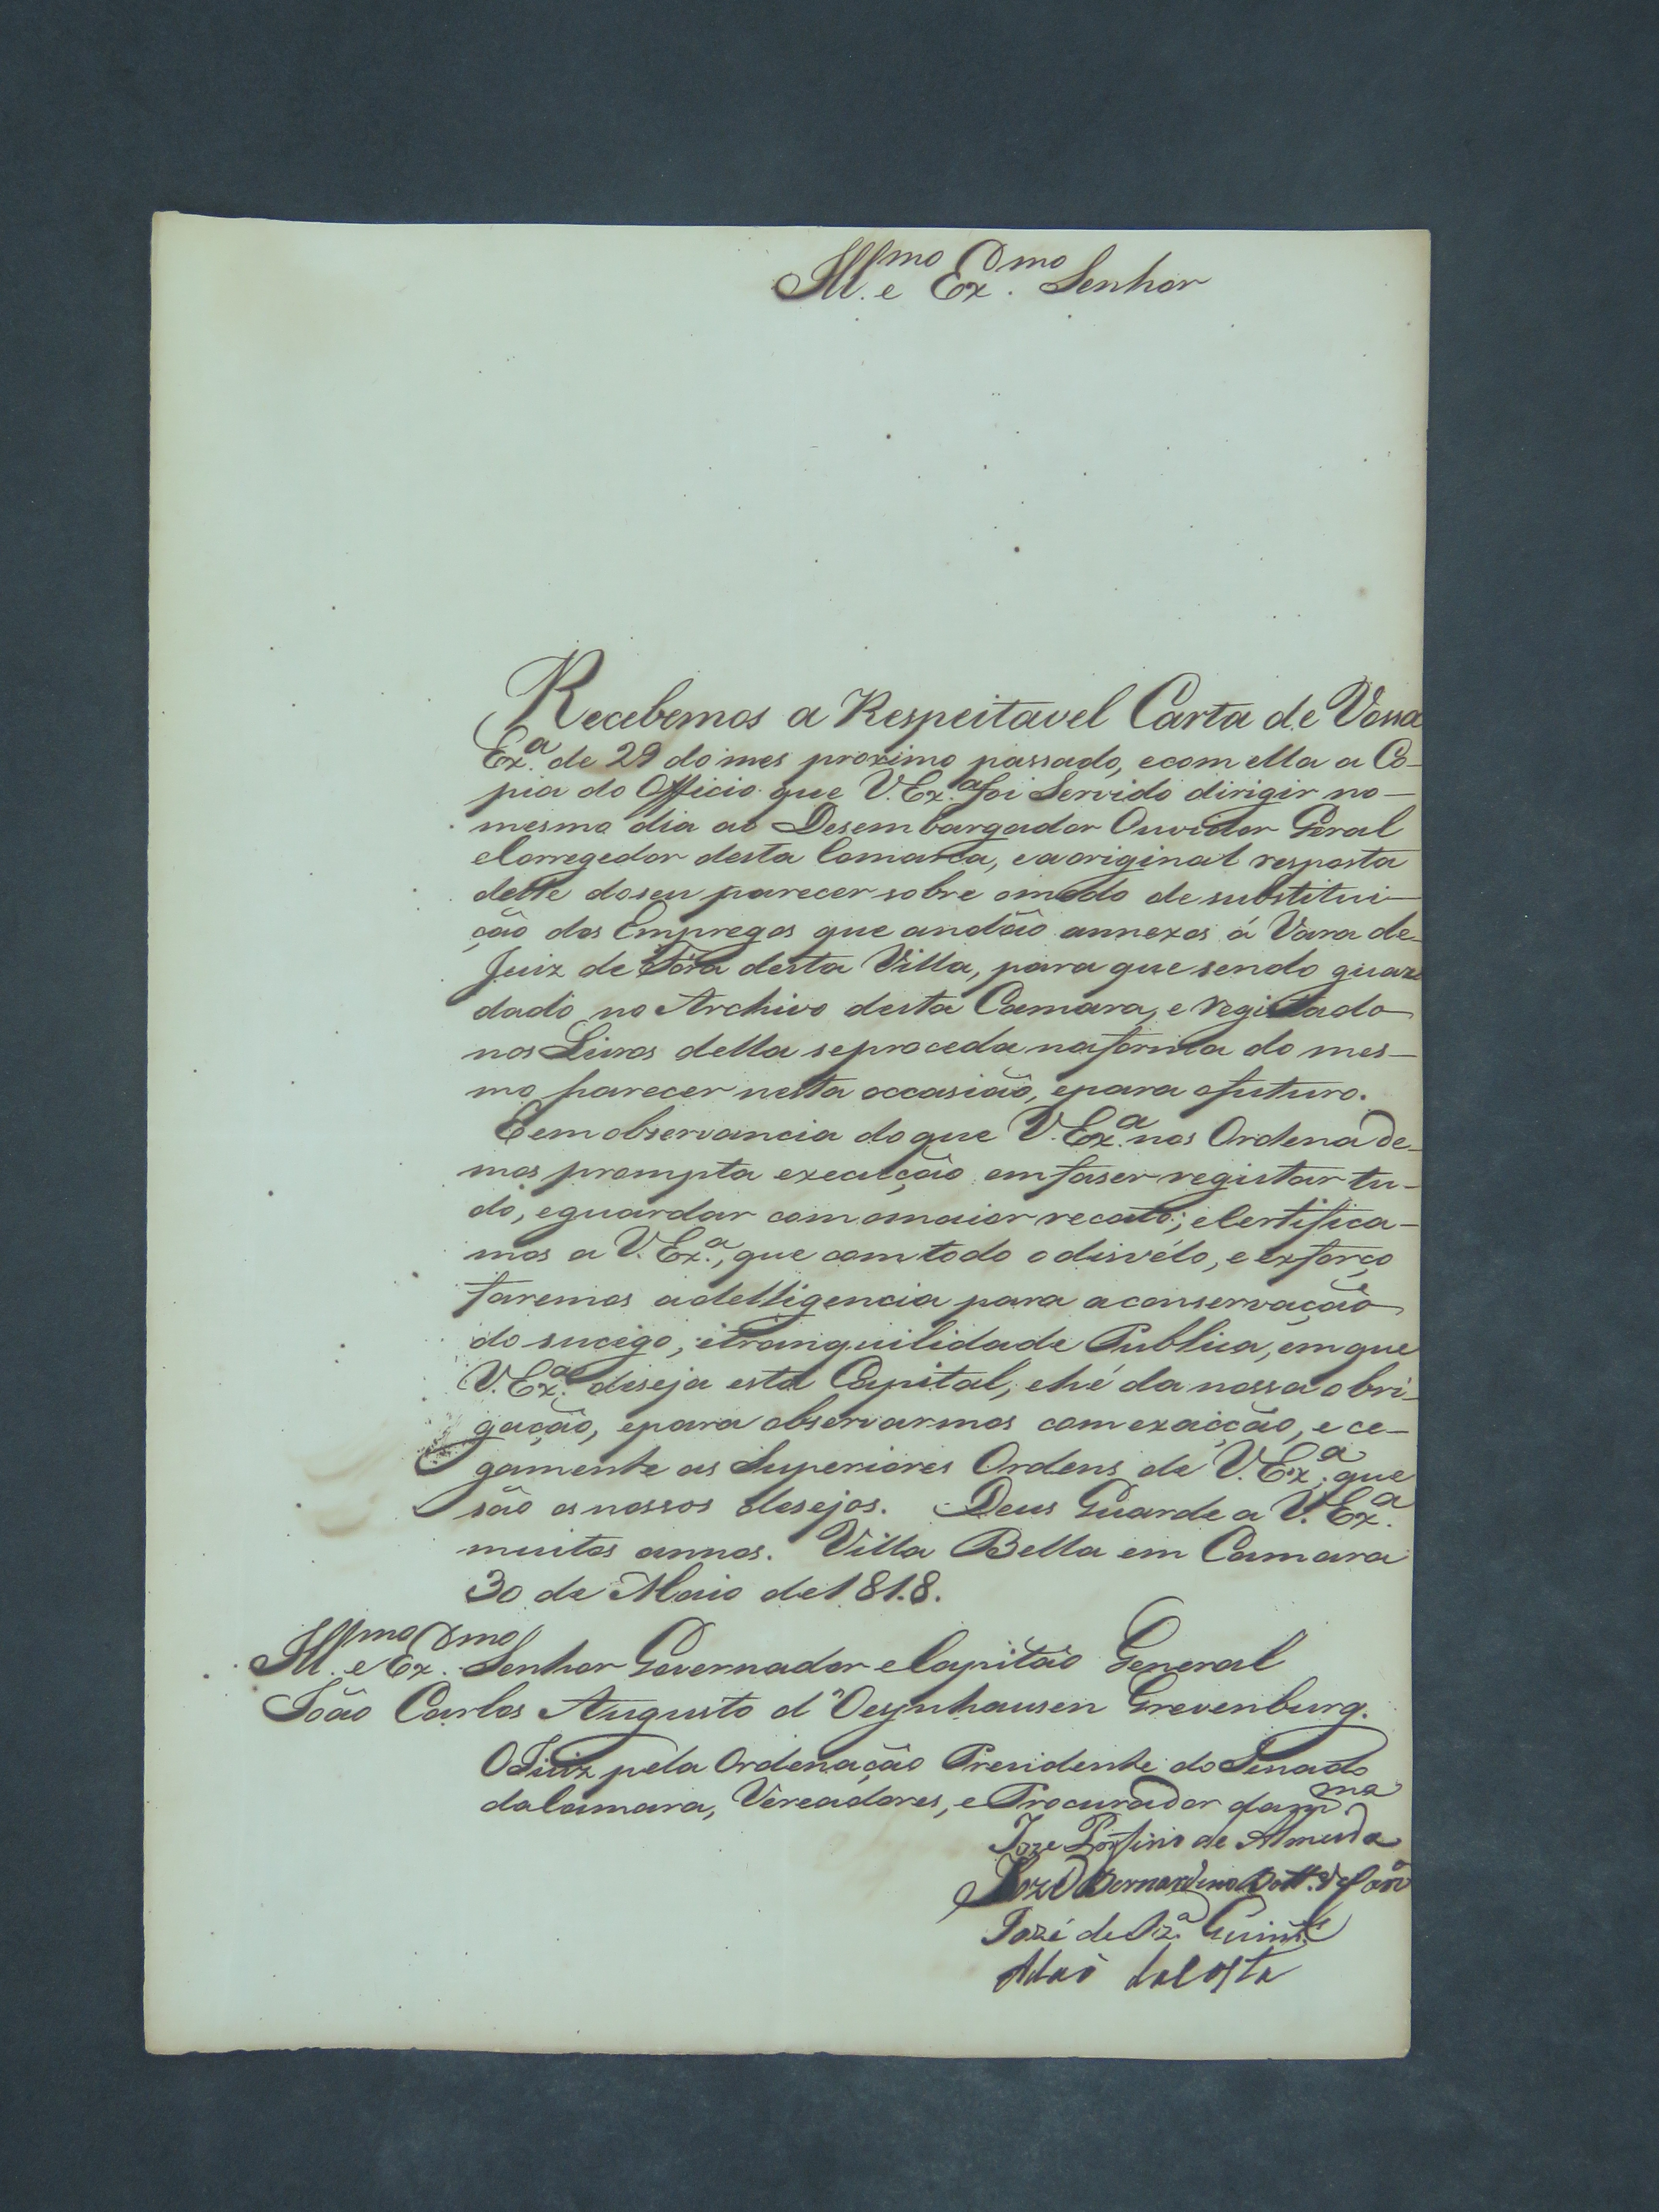 Ill.mo e Ex.mo Senhor
Recebemos a Respeitavel Carta de Vossa
Ex.a de 29 do mes proximo passado, ecom ella a Co-
pia do Officio que V. Ex.a foi Servido dirigir no-
mesmo dia ao Desembargador Ouvidor Geral
eCorregedor desta Comarca, eaoriginal resposta
delle doseu parecer sobre omodo desubstitui-
ção dos Empregos que andão annexos á Vara de-
Juiz de Fóra desta Villa, para que sendo guar-
dado no Archivo desta Camara, e registado
nos Livros della seproceda naforma do mes-
mo parecer nesta occasião, epara ofuturo.
E em observancia doque V. Ex.a nos Ordena de-
mos prompta execução emfaser registar tu-
do, eguardar comomaior recato; eCertifica-
mos a V. Ex.a, que comtodo odisvélo, e exforço
faremos adelligencia para aconservação
do sucego, etranquilidade Publica, emque
V. Ex.a deseja esta Capital, ehé da nossa obri-
gação, epara observarmos comexacção, e ce-
gamente as Superiores Ordens de V. Ex.a que
são os nossos desejos. Deus Guarde a V. Ex.a
muitos annos. Villa Bella em Camara
30 de Maio de 1818.
Ill.mo e Ex.mo Senhor Governador eCapitão General
João Carlos Augusto d'Oeynhausen Grevenburg.
OJuiz pela Ordenação Presidente do Senado
daCamara, Vereadores, e Procurador dam.ma
Joze Porfirio de Almeida
Joze Bernardino
José de Guim.es
Adaõ daCosta